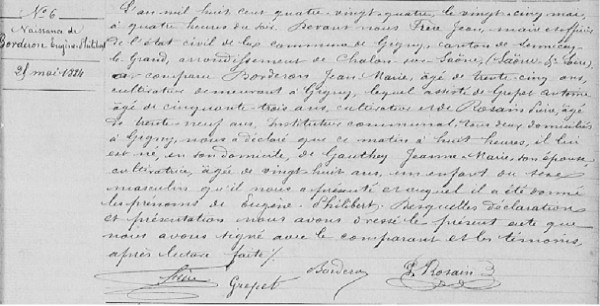 N° 6
Naissance de
Borderon Eugène Philibert
25 mai 1884
L'an mil huit cent quatre-vingt-quatre le vingt-cinq mai,
à quatre heures du soir. Devant nous Frère Jean, maire et officier
de l'état civil de la commune de Gigny, canton de Sennecey
le Grand, arrondissement de Chalon-sur-Saône, (Saône & Loire),
est comparu Borderon Jean Marie, âgé de trente cinq ans,
cultivateur demeurant à Gigny, lequel assisté de Grepet Antoine
âgé de cinquante trois ans, cultivateur et de Rosain, âgé
de trente neuf ans, Instituteur communal, tous deux domiciliés
à Gigny, nous a déclaré que ce matin à huit heures, il lui
est né, en son domicile, de Gauthey Jeanne Marie, son épouse
cultivatrice, âgée de vingt huit ans, un enfant du sexe
masculin qu'il nous a présenté et auquel il a été donné
les prénoms de Eugène Philibert. Desquelles déclaration
et présentation nous avons dressé le présent acte que
nous avons signé avec le comparant et les témoins,
après lecture faite.
Frère Grepet Borderon Rosain